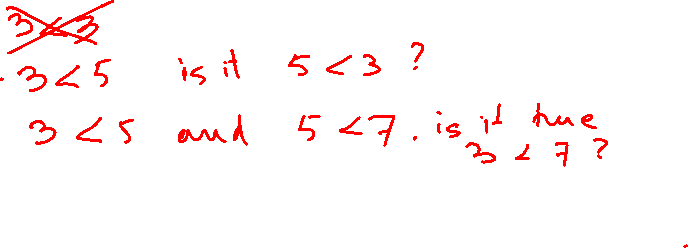 3 < 3
3 < 5 is it 5 < 3 ?
3 < 5 and 5 < 7. is it true
3 < 7 ?